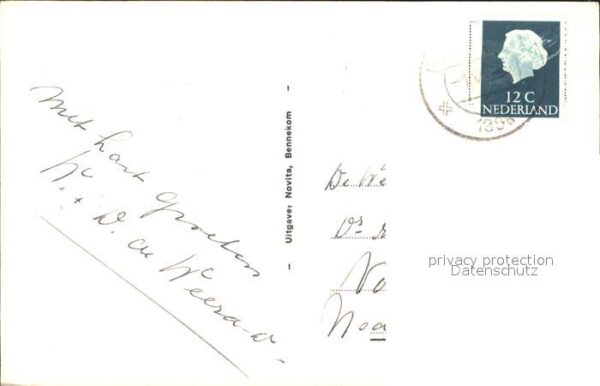 Met hart groeten
K. + D. de Weerd
Uitgave: Novita, Bennekom
12 C
NEDERLAND
De We
Dr.
No
Noo
privacy protection
Datenschutz